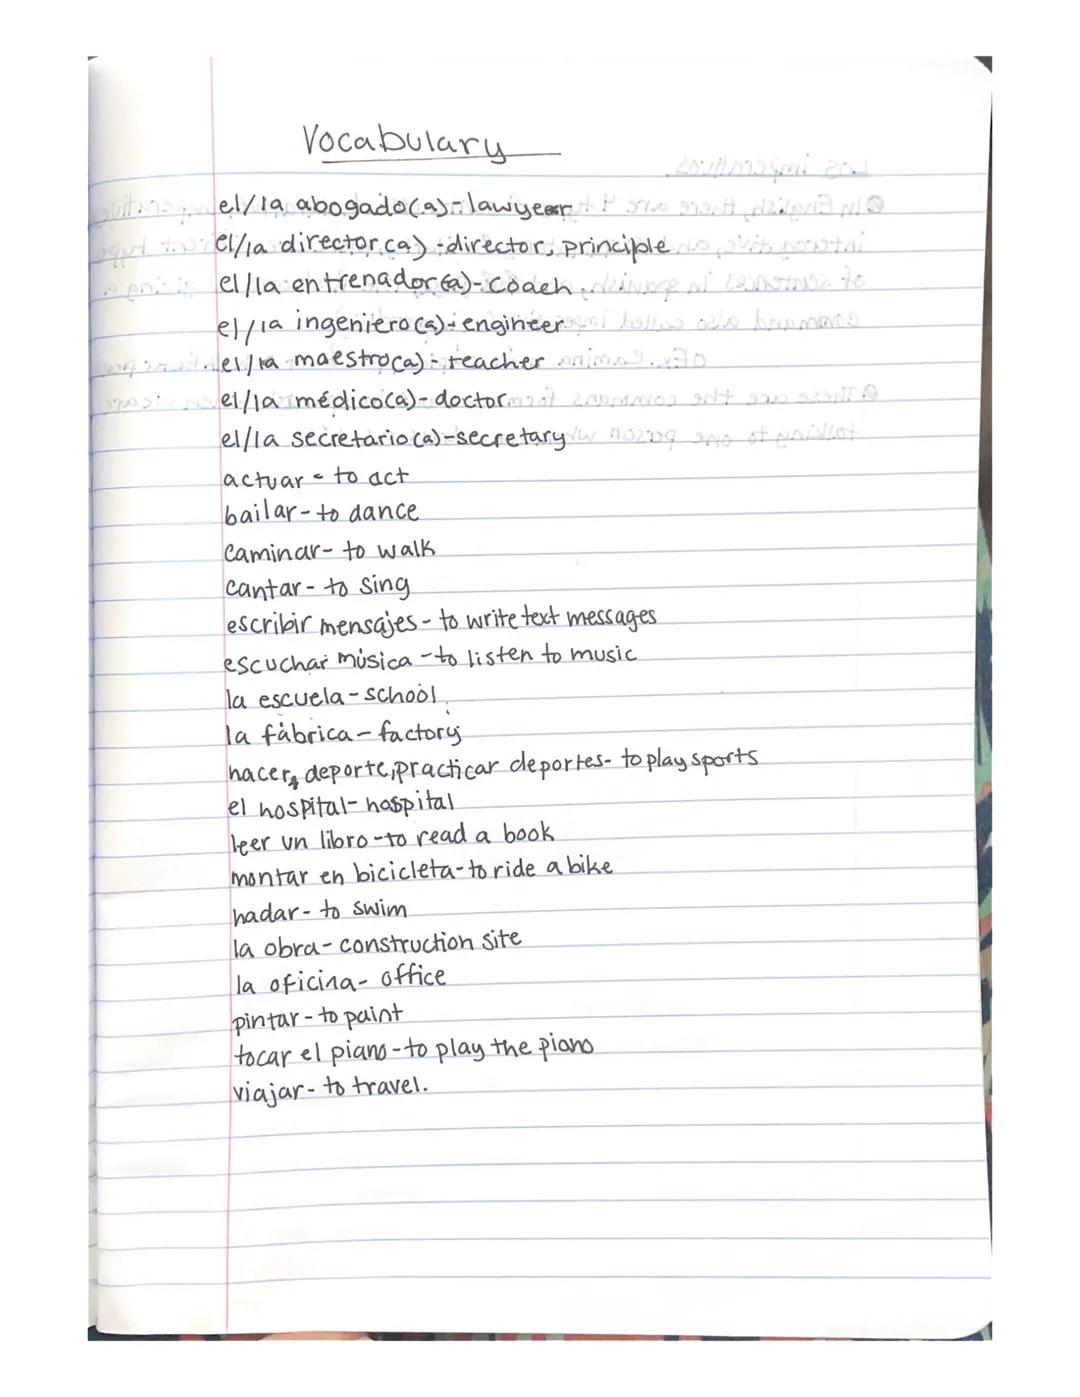 Vocabulary
el/la abogado(a)-lawyer
el/la director(a)-director, principle
el/la entrenador(a)-coach
el/la ingeniero(a)-engineer
el/la maestro(a)-teacher
el/la médico(a)-doctor
el/la secretario(a)-secretary
actuar - to act
bailar-to dance
caminar- to walk
cantar- to sing
escribir mensajes - to write text messages
escuchar música -to listen to music
la escuela-school
la fábrica-factory
hacer deporte, practicar deportes- to play sports
el hospital-hospital
leer un libro -to read a book
montar en bicicleta-to ride a bike
nadar- to swim
la obra- construction site
la oficina- office
pintar-to paint
tocar el piano-to play the piano
viajar- to travel.